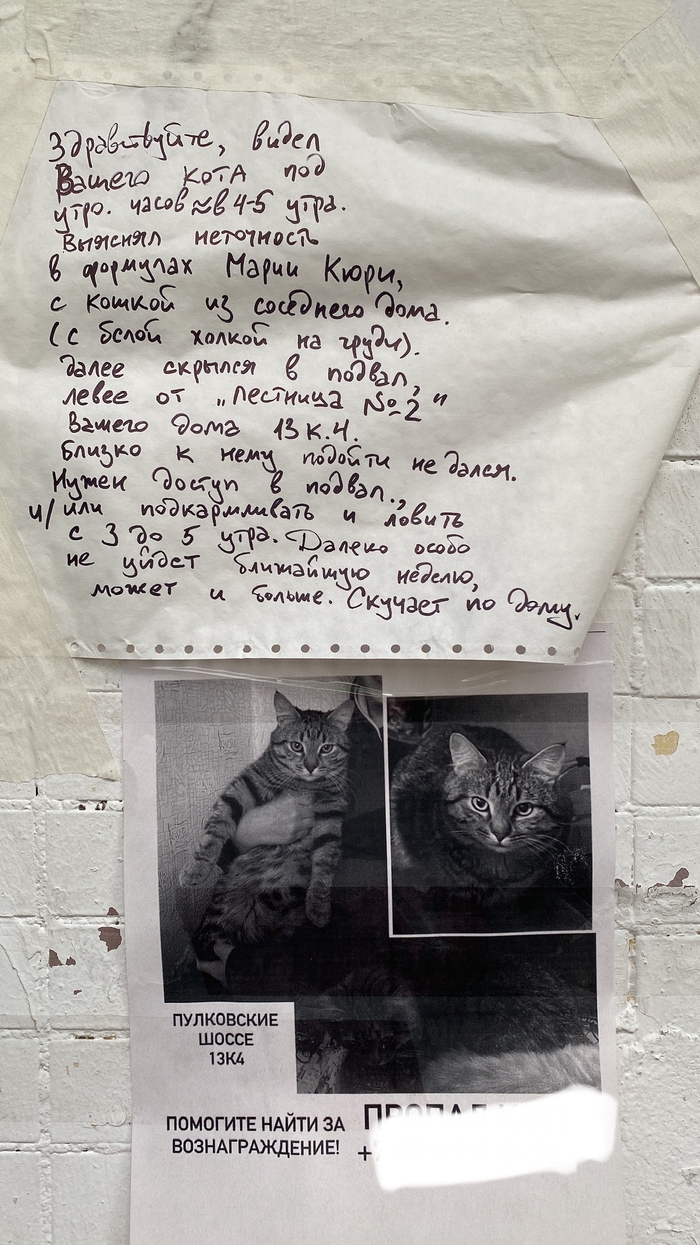 Здравствуйте, видел
Вашего кота под
утро. часов ≈ в 4-5 утра.
Выяснял неточность
в формулах Марии Кюри,
с кошкой из соседнего дома.
(с белой холкой на груди).
далее скрылся в подвал,
левее от „Лестница №2"
Вашего дома 13 к.4.
Близко к нему подойти не дался.
Нужен доступ в подвал.,
и/или подкармливать и ловить
с 3 до 5 утра. Далеко особо
не уйдет ближайшую неделю,
может и больше. Скучает по дому.
ПУЛКОВСКИЕ
ШОССЕ
13К4
ПОМОГИТЕ НАЙТИ ЗА
ВОЗНАГРАЖДЕНИЕ!
ПРОПАЛ
+